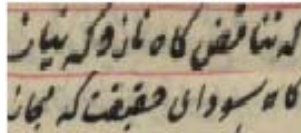 که تناقض گاه ناز و که نیاز
گاه سودای حقیقت که مجاز